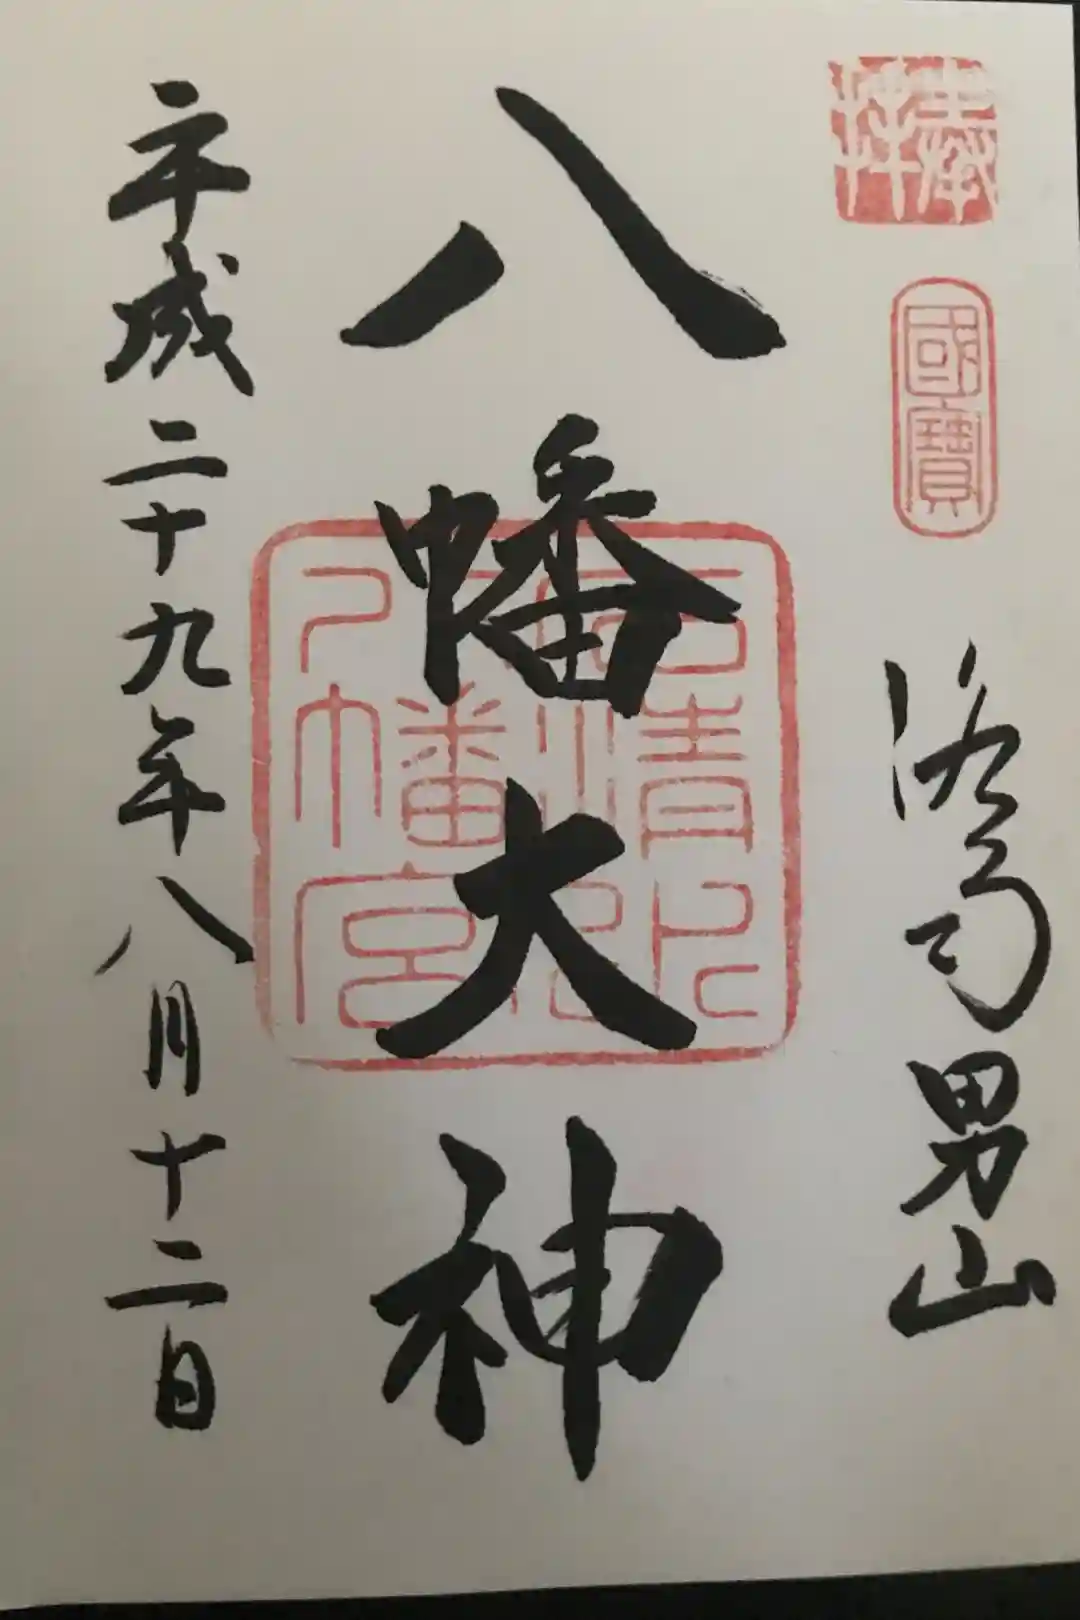 奉拝
國寶
洛南男山
八幡大神
石清水八幡宮印
平成二十九年八月十二日